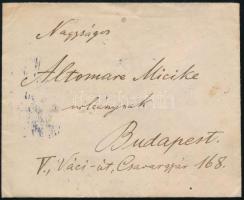 Nagyságos
Altomare Micike
urleánynak
Budapest.
V., Váci-út, Csavargyár 168.